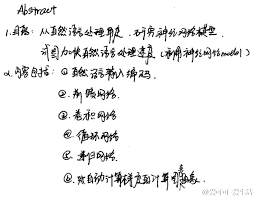 Abstract
1.目标：从自然语言处理角度，研究神经网络模型.
试图加快自然语言处理速度（利用神经网络model）
2.内容包括：①自然语言输入编码.
②.前馈网络
③.卷积网络
④.循环网络
⑤.递归网络.
⑥.自动计算梯度的计算图